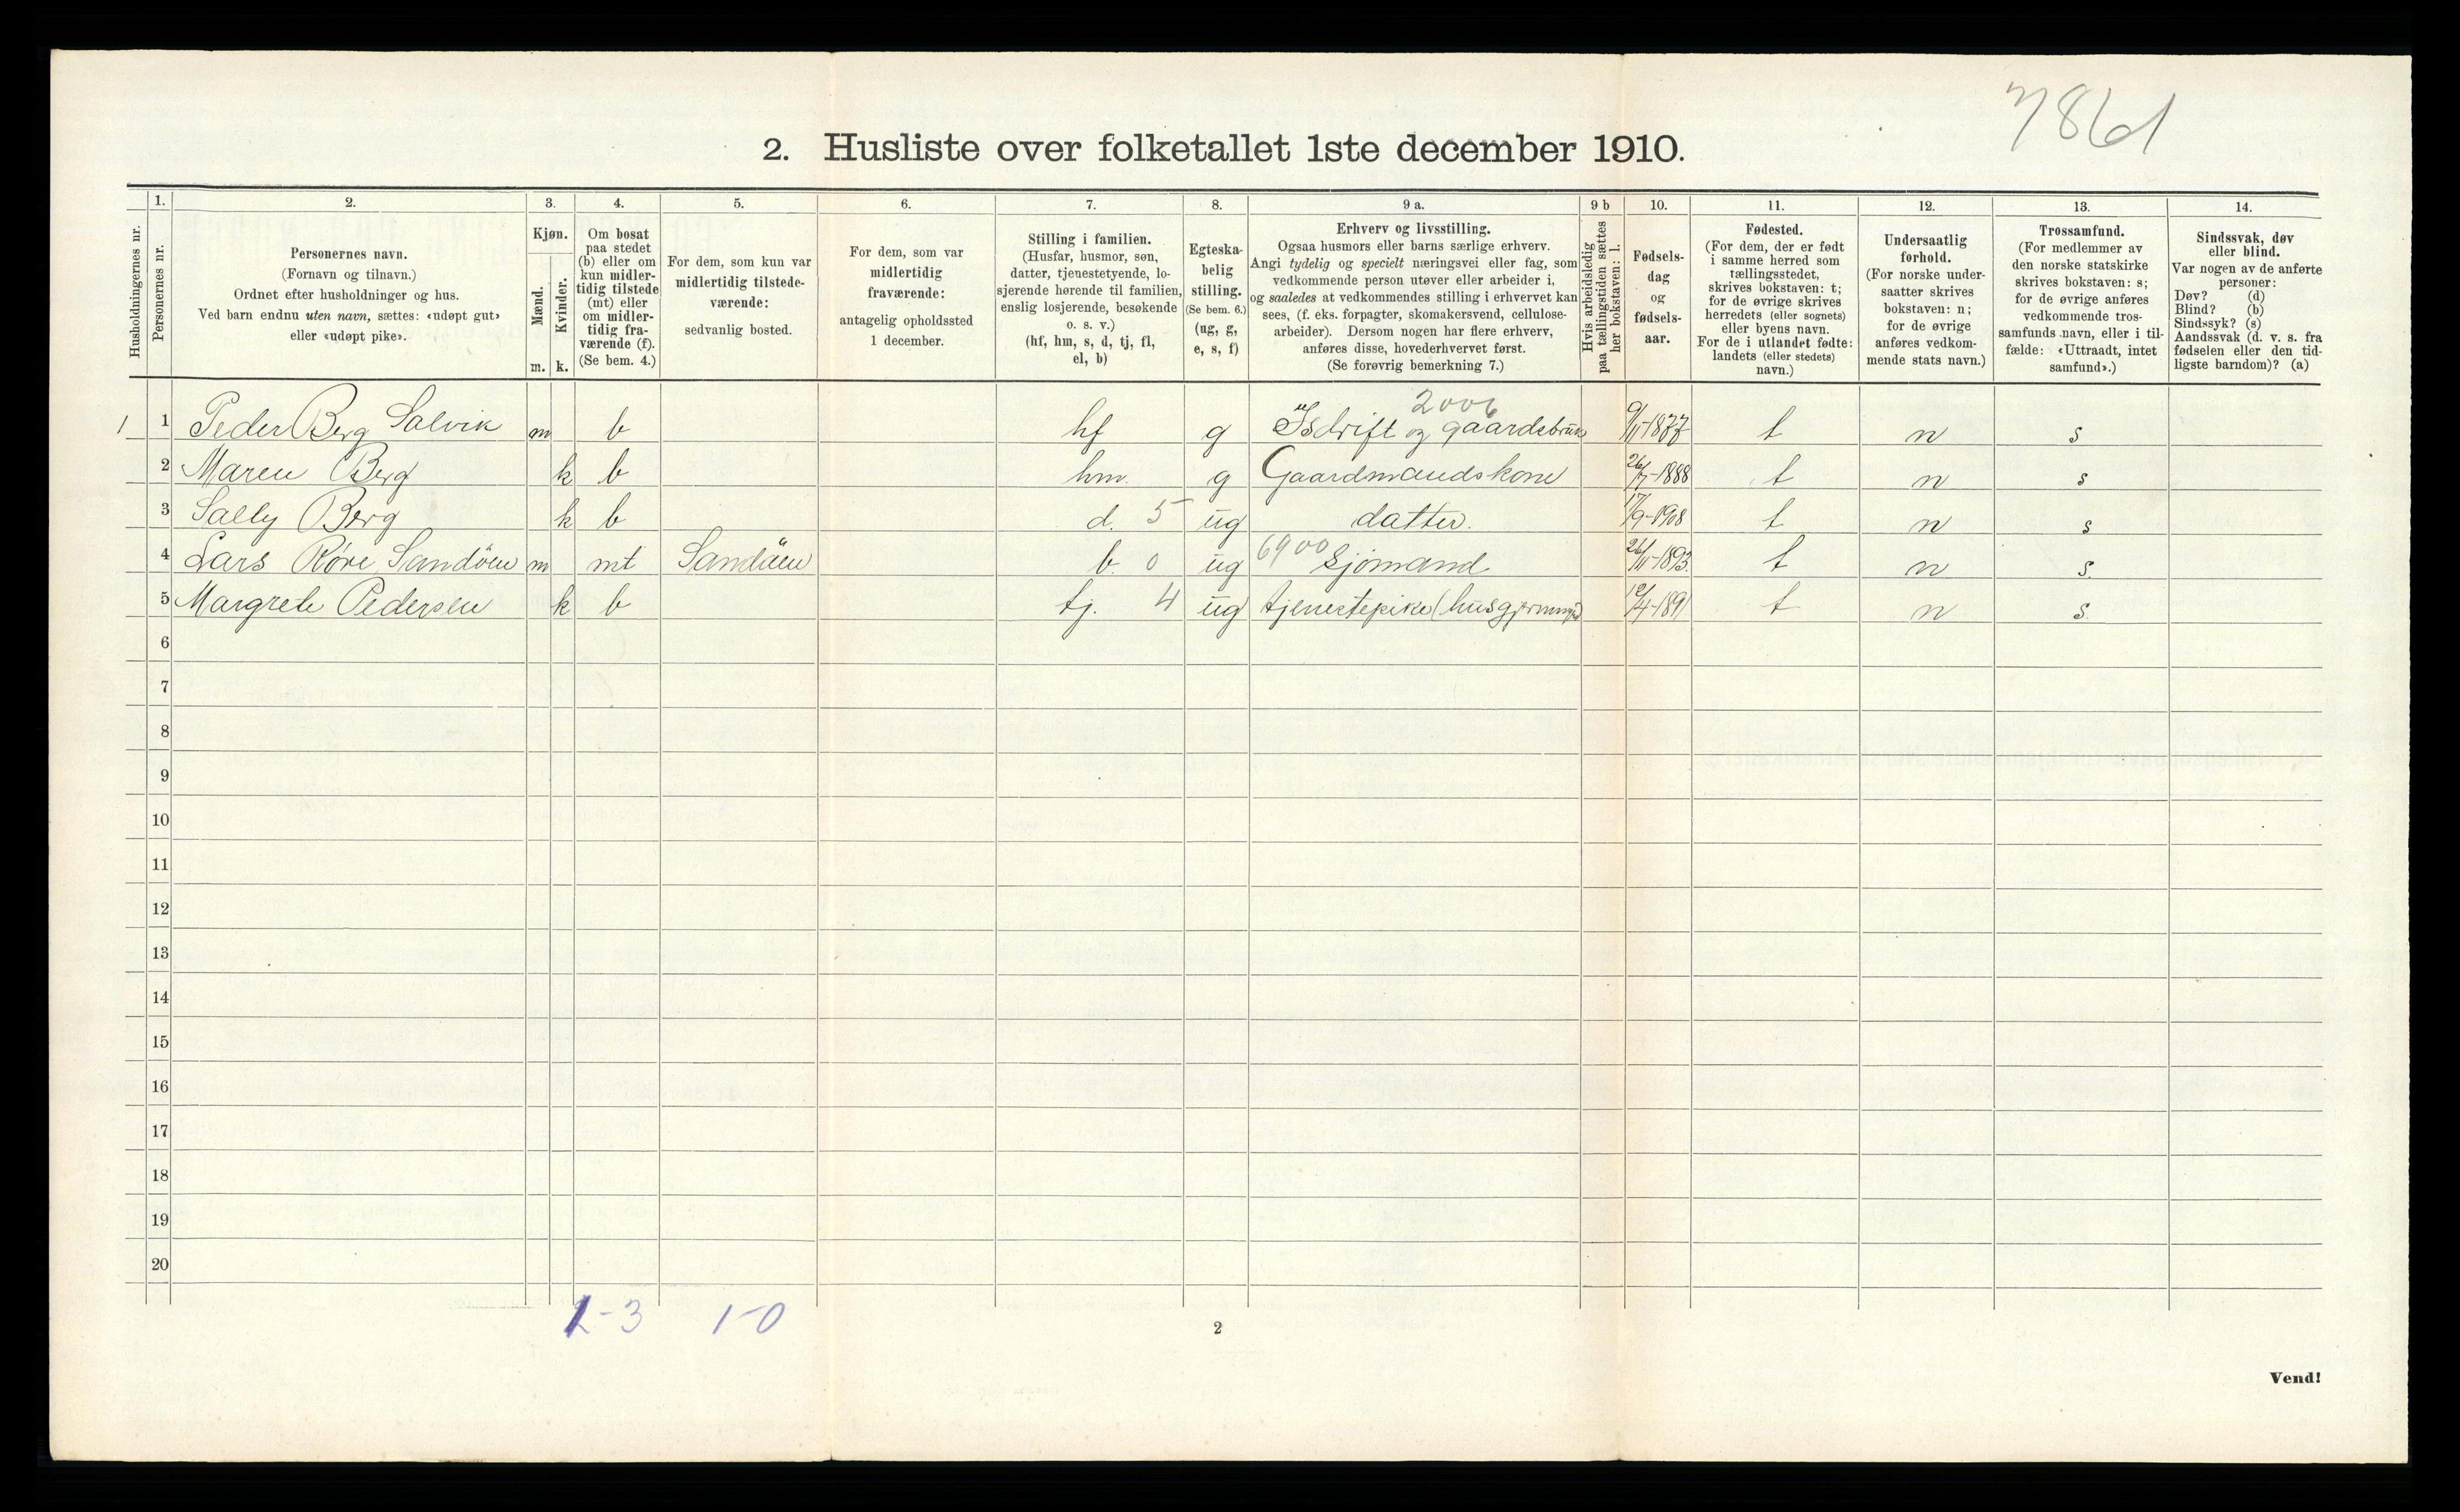 7861
2. Husliste over folketallet 1ste december 1910.
Husholdningernes nr.
1.
Personernes nr.
2.
Personernes navn.
(Fornavn og tilnavn.)
Ordnet efter husholdninger og hus.
Ved barn endnu uten navn, sættes: «udøpt gut»
eller «udøpt pike».
3.
Kjøn.
Mænd.
Kvinder.
m. k.
4.
Om bosat
paa stedet
(b) eller om
kun midler-
tidig tilstede
(mt) eller
om midler-
tidig fra-
værende (f).
(Se bem. 4.)
5.
For dem, som kun var
midlertidig tilstede-
værende:
sedvanlig bosted.
6.
For dem, som var
midlertidig
fraværende:
antagelig opholdssted
1 december.
7.
Stilling i familien.
(Husfar, husmor, søn,
datter, tjenestetyende, lo-
sjerende hørende til familien,
enslig losjerende, besøkende
o. s. v.)
(hf, hm, s, d, tj, fl,
el, b)
8.
Egteska-
belig
stilling.
(Se bem. 6.)
(ug, g,
e, s, f)
9 a.
Erhverv og livsstilling.
Ogsaa husmors eller barns særlige erhverv.
Angi tydelig og specielt næringsvei eller fag, som
vedkommende person utøver eller arbeider i,
og saaledes at vedkommendes stilling i erhvervet kan
sees, (f. eks. forpagter, skomakersvend, cellulose-
arbeider). Dersom nogen har flere erhverv,
anføres disse, hovederhvervet først.
(Se forøvrig bemerkning 7.)
9 b
Hvis arbeidsledig
paa tællingstiden sættes
her bokstaven: l.
10.
Fødsels-
dag
og
fødsels-
aar.
11.
Fødested.
(For dem, der er født
i samme herred som
tællingsstedet,
skrives bokstaven: t;
for de øvrige skrives
herredets (eller sognets)
eller byens navn.
For de i utlandet fødte:
landets (eller stedets)
navn.)
12.
Undersaatlig
forhold.
(For norske under-
saatter skrives
bokstaven: n;
for de øvrige
anføres vedkom-
mende stats navn.)
13.
Trossamfund.
(For medlemmer av
den norske statskirke
skrives bokstaven: s;
for de øvrige anføres
vedkommende tros-
samfunds navn, eller i til-
fælde: «Uttraadt, intet
samfund».)
14.
Sindssvak, døv
eller blind.
Var nogen av de anførte
personer:
Døv? (d)
Blind? (b)
Sindssyk? (s)
Aandssvak (d. v. s. fra
fødselen eller den tid-
ligste barndom)? (a)
2006
1 1 Peder Berg Salvik m b hf g Isdrift og gaardsbruk 9/11-1877 t n s
2 Maren Berg k b hm. g Gaardmandskone 26/7-1888 t n s
3 Sally Berg k b d. 5 ug datter. 17/9-1908 t n s
4 Lars Røre Sandöen m mt Sandöen b. 0 ug 6900 Sjömand 26/11-1893 t n s.
5 Margrete Pedersen k b tj. 4 ug tjenestepike (husgjerning) 12/4-1891 t n s.
6
7
8
9
10
11
12
13
14
15
16
17
18
19
20
1-3 1-0
2
Vend!